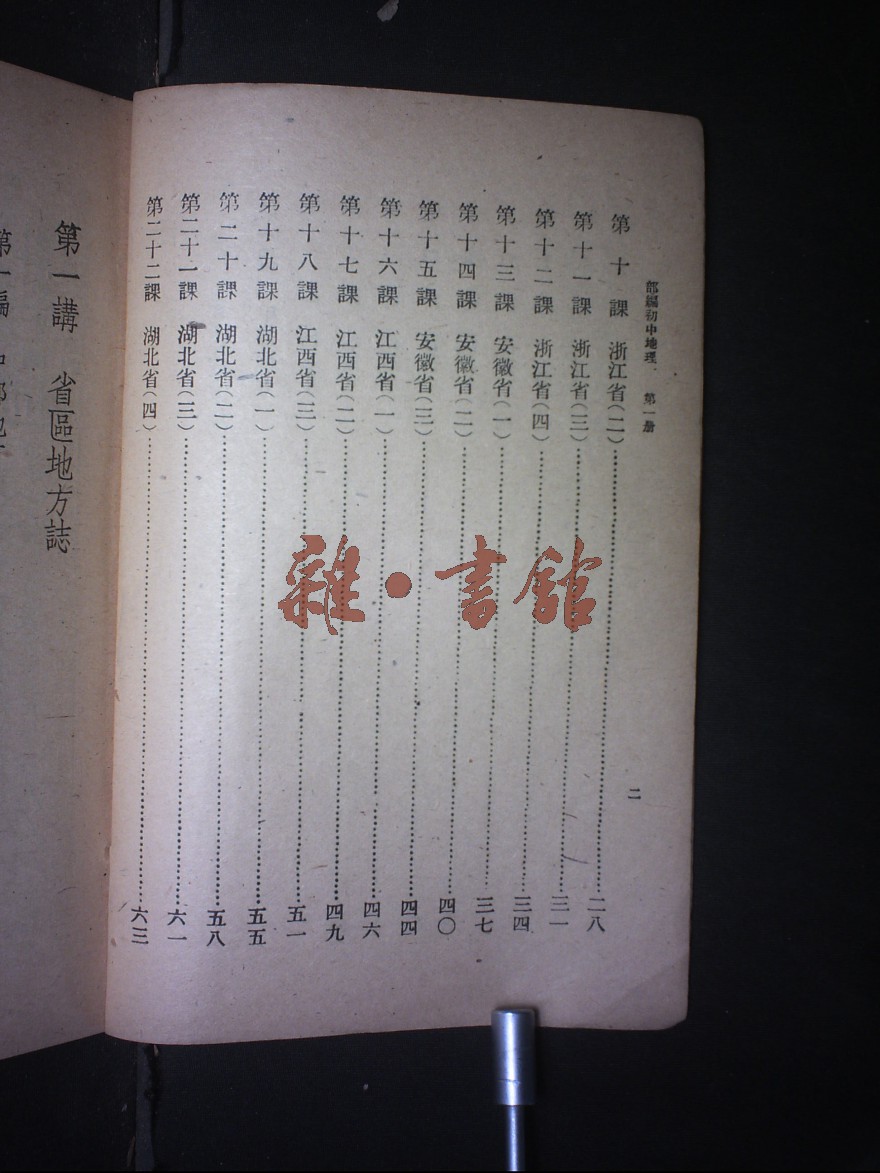 部編初中地理 第一册
二
第十課 浙江省(二)……二八
第十一課 浙江省(三)……三一
第十二課 浙江省(四)……三四
第十三課 安徽省(一)……三七
第十四課 安徽省(二)……四〇
第十五課 安徽省(三)……四四
第十六課 江西省(一)……四六
第十七課 江西省(二)……四九
第十八課 江西省(三)……五一
第十九課 湖北省(一)……五五
第二十課 湖北省(二)……五八
第二十一課 湖北省(三)……六一
第二十二課 湖北省(四)……六三
雜·書館
第一講 省區地方誌
第一編